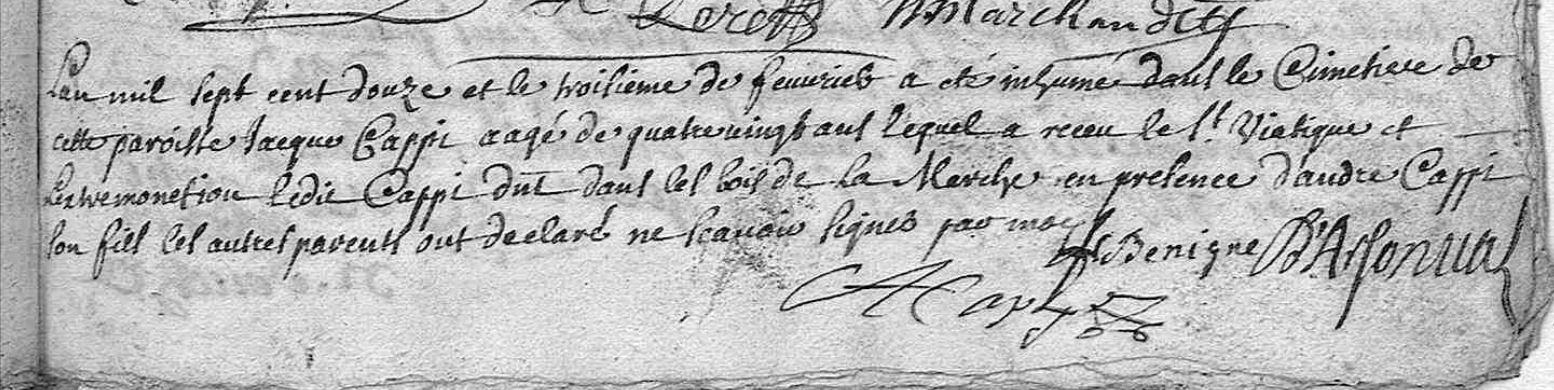 Marchandet
Lan mil sept cent douze et le troisieme de feuurier a eté inhumé dans le Cimetiere de
cette paroisse Jacque Cappi aagé de quatre vingt ans lequel a receu le st. Viatique et
Lextremonction ledit Cappi dans les bois de la Marche en presence dandre Cappi
son fils les autres parents ont declaré ne scauoir signer par moy
Benigne D'Arsonual